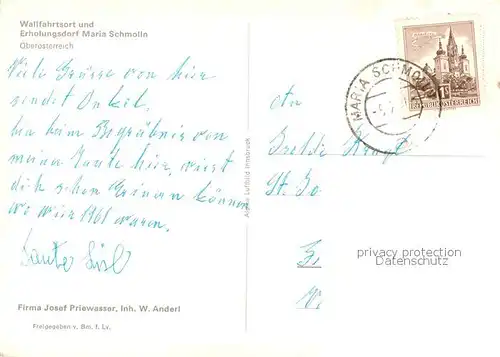 Wallfahrtsort und
Erholungsdorf Maria Schmolln
Oberösterreich
Viele Grüsse von hier
sendet Onkel,
bin beim Begräbnis von
meiner Tante hier, wirst
dich schon erinnern können
wo wir 1961 waren.
Tante
Firma Josef Priewasser, Inh. W. Anderl
Freigegeben v. Bm. f. Lv.
Alpine Luftbild Innsbruck
MARIA SCHMOLLN
1S
REPUBLIK ÖSTERREICH
An
St. Jo
privacy protection
Datenschutz